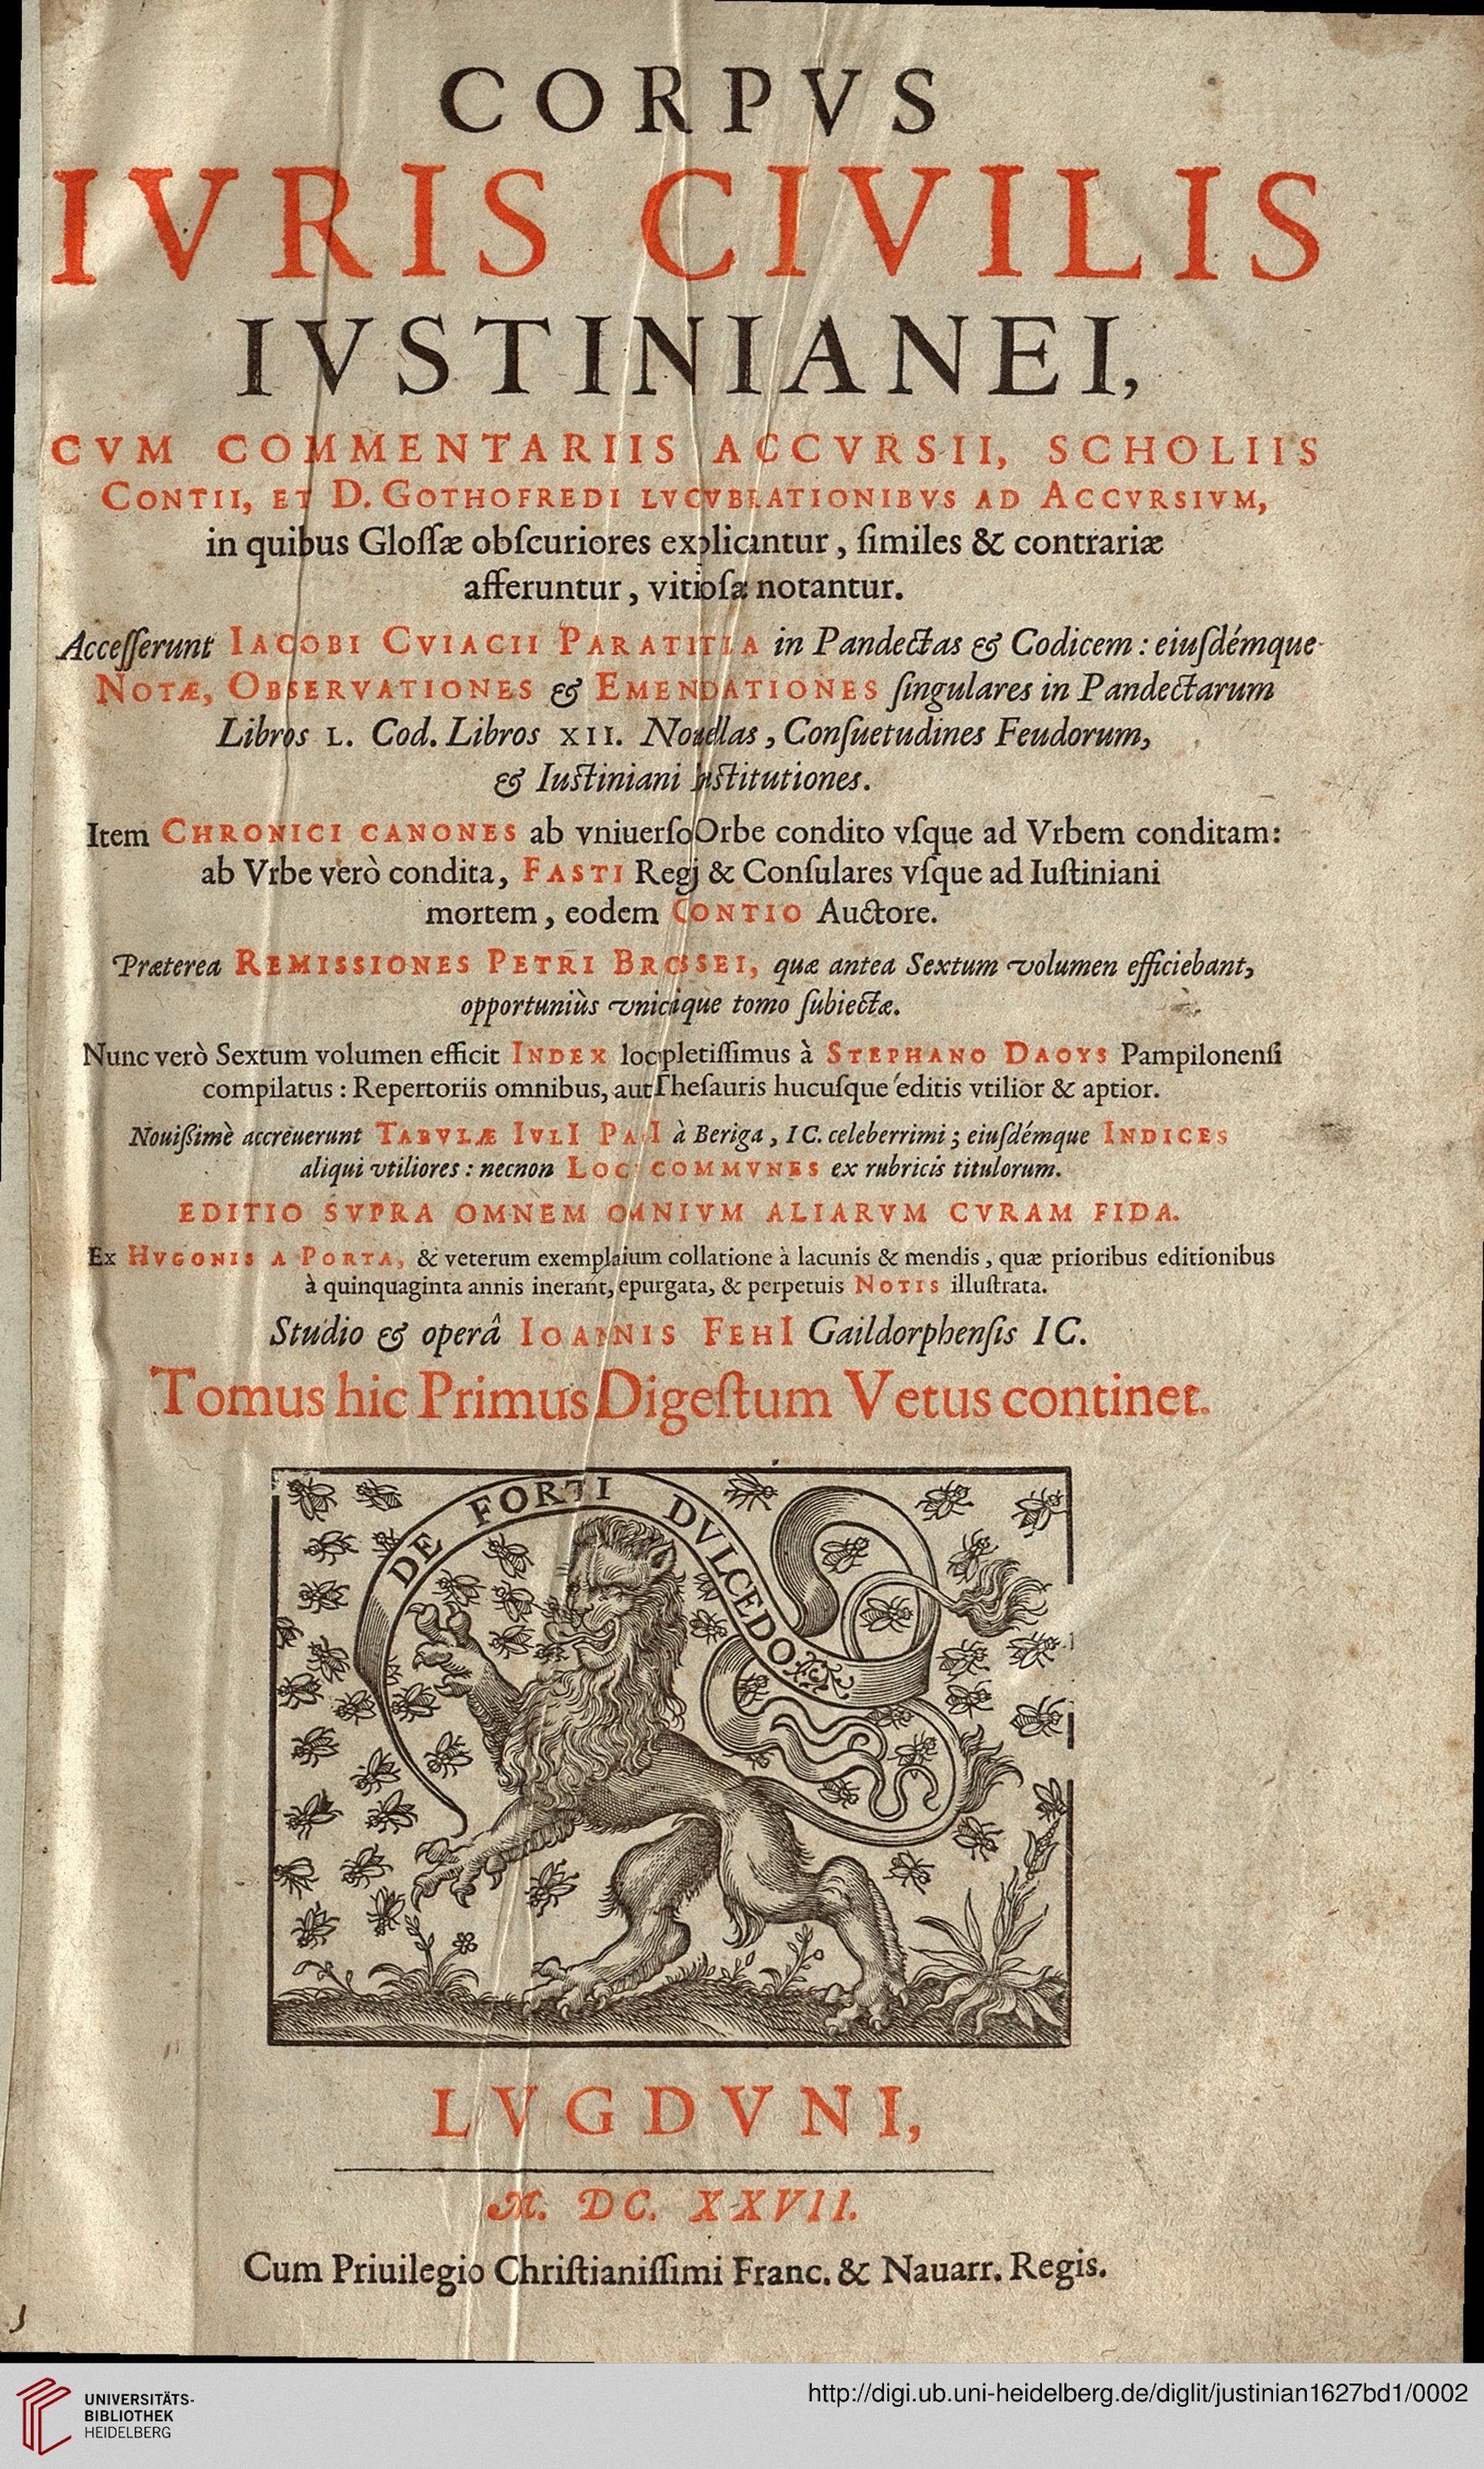 CORPVS
IVRIS CIVILIS
IVSTINIANEI,
CVM COMMENTARIIS ACCVRSII, SCHOLIIS
CONTII, ET D. GOTHOFREDI LVCVBRATIONIBVS AD ACCVRSIVM,
in quibus Gloſſæ obſcuriores explicantur, ſimiles & contrariæ
afferuntur, vitioſæ notantur.
Acceſſerunt IACOBI CVIACII PARATITLA in Pandectas & Codicem: eiuſdémque
NOTÆ, OBSERVATIONES & EMENDATIONES ſingulares in Pandectarum
Libros L. Cod. Libros XII. Nouellas, Conſuetudines Feudorum,
& Iuſtiniani Inſtitutiones.
Item CHRONICI CANONES ab vniuerſo Orbe condito vſque ad Vrbem conditam:
ab Vrbe verò condita, FASTI Regij & Conſulares vſque ad Iuſtiniani
mortem, eodem CONTIO Auctore.
Præterea REMISSIONES PETRI BROSSEI, quæ antea Sextum volumen efficiebant,
opportuniùs vnicuique tomo ſubiectæ.
Nunc verò Sextum volumen efficit INDEX locupletiſſimus à STEPHANO DAOYS Pampilonenſi
compilatus: Repertoriis omnibus, aut Theſauris hucuſque editis vtilior & aptior.
Nouiſſimè accreuerunt TABVLÆ IVLI PACI à Beriga, IC. celeberrimi; eiuſdémque INDICES
aliqui vtiliores: necnon LOCI COMMVNES ex rubricis titulorum.
EDITIO SVPRA OMNEM OMNIVM ALIARVM CVRAM FIDA.
Ex HVGONIS A PORTA, & veterum exemplarium collatione à lacunis & mendis, quæ prioribus editionibus
à quinquaginta annis inerant, epurgata, & perpetuis NOTIS illuſtrata.
Studio & operâ IOANNIS FEHI Gaildorphenſis IC.
Tomus hic Primus Digeſtum Vetus continet.
DE FORTI DVLCEDO
LVGDVNI,
M. DC. XXVII.
Cum Priuilegio Chriſtianiſſimi Franc. & Nauarr. Regis.
UNIVERSITÄTS-
BIBLIOTHEK
HEIDELBERG
http://digi.ub.uni-heidelberg.de/diglit/justinian1627bd1/0002